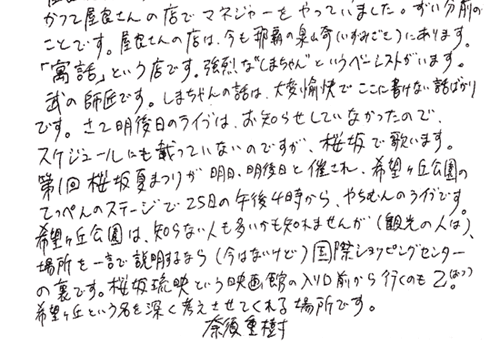 かつて屋良さんの店でマネジャーをやっていました。ずい分前の
ことです。屋良さんの店は、今も那覇の泉崎(いずみざき)にあります。
「寓話」という店です。強烈な"しまちゃん"というベーシストがいます。
武の師匠です。しまちゃんの話は、大変愉快でここに書けない話ばかり
です。さて明後日のライブは、お知らせしていなかったので、
スケジュールにも載っていないのですが、桜坂で歌います。
第1回桜坂夏まつりが明日、明後日と催され、希望ヶ丘公園の
てっぺんのステージで25日の午後4時から、やちむんのライブです。
希望ヶ丘公園は、知らない人も多いかも知れませんが(観光の人は)、
場所を一言で説明するなら(今はないけど)国際ショッピングセンター
の裏です。桜坂琉映という映画館の入り口前から行くのも乙。(おつ)
希望ヶ丘という名を深く考えさせてくれる場所です。
奈須重樹